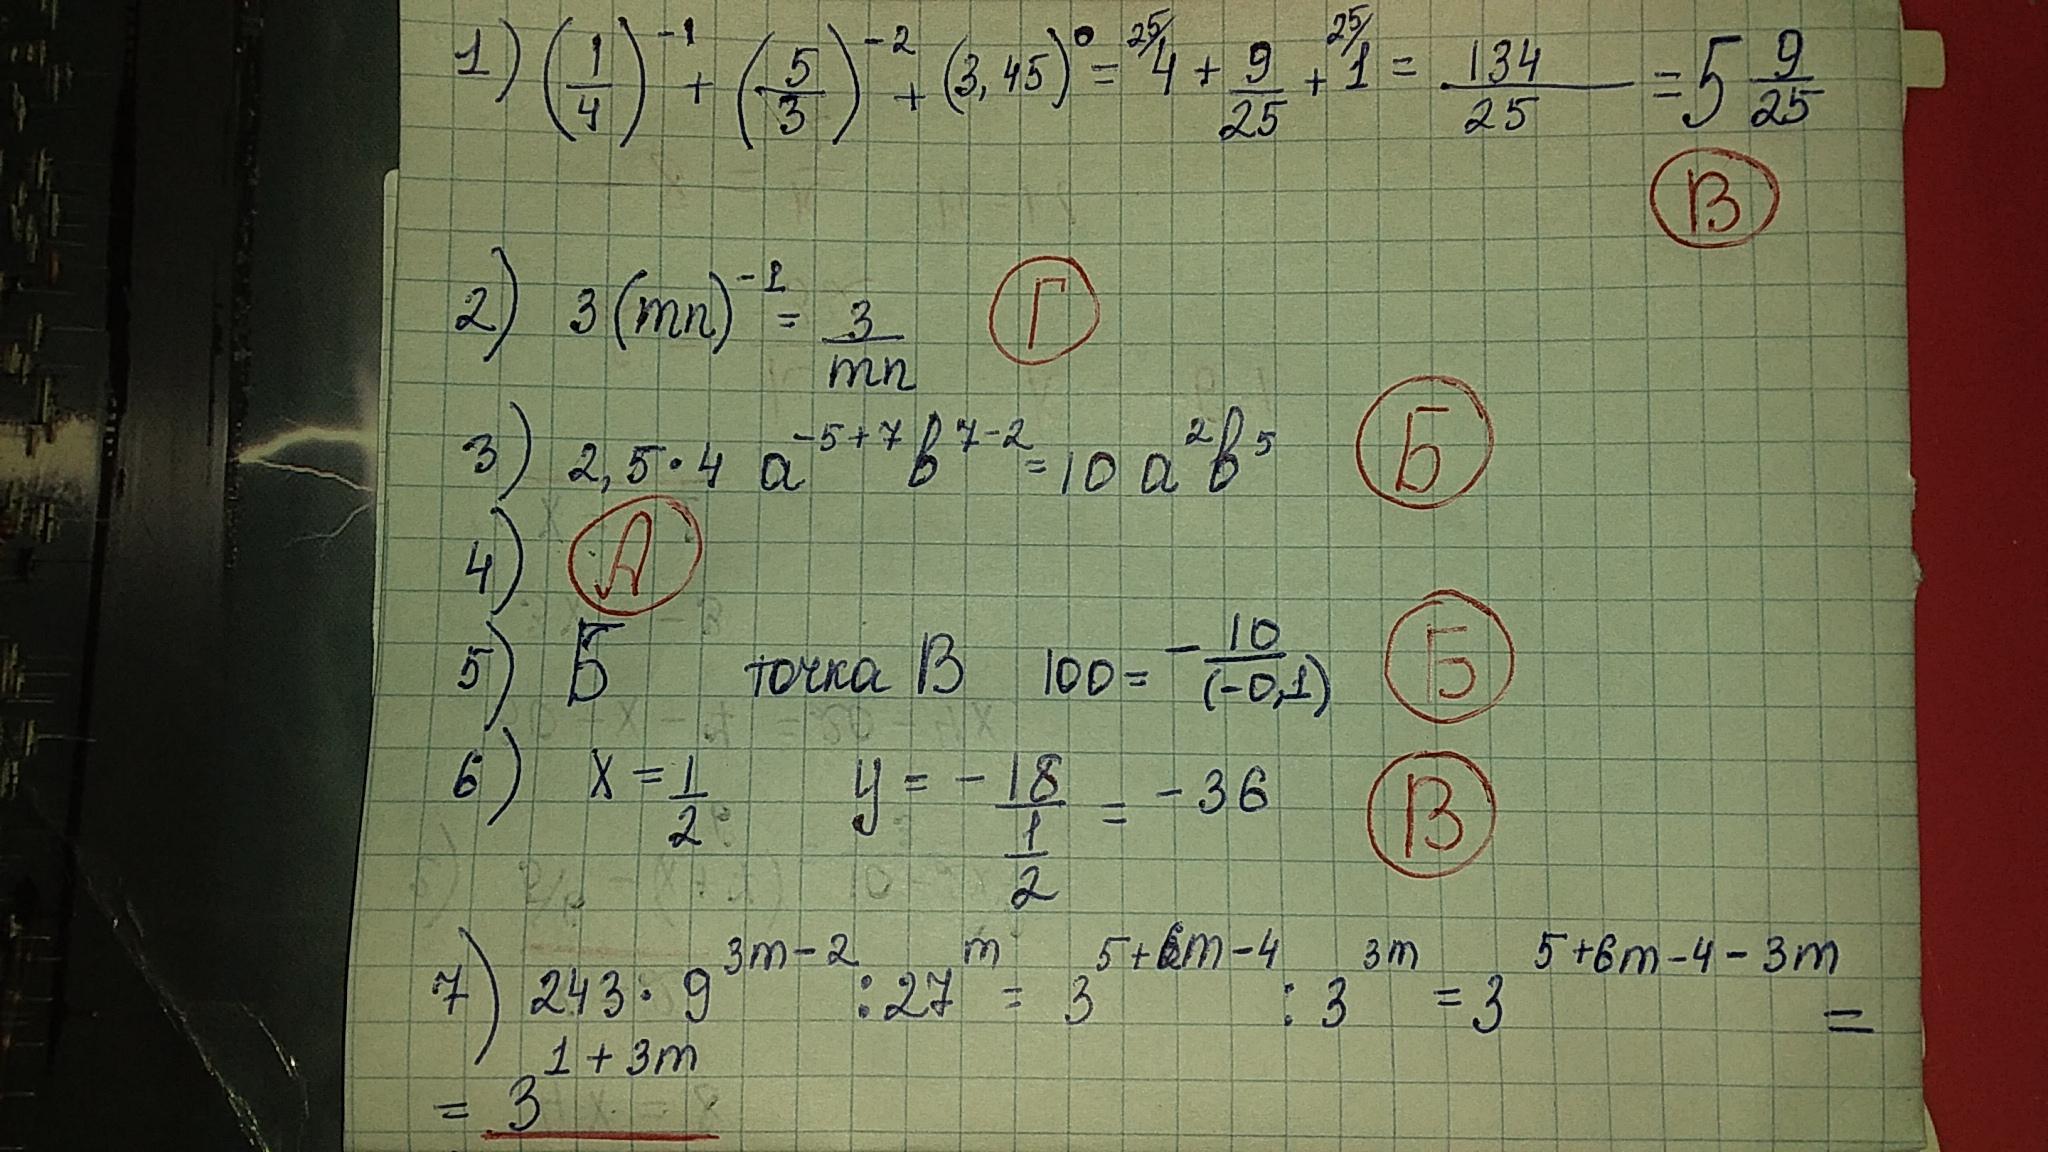 1) (1/4)^-1 + (5/3)^-2 + (3,45)^0 = 25/ 4 + 9/25 + 25/ 1 = 134/25 = 5 9/25
В
2) 3(mn)^-1 = 3/mn Г
3) 2,5·4 a^-5+7 b^7-2 = 10 a^2 b^5 Б
4) А
5) Б точка В 100 = - 10/(-0,1) Б
6) x = 1/2 y = - 18/(1/2) = -36 В
7) 243 · 9^3m-2 : 27^m = 3^5+6m-4 : 3^3m = 3^5+6m-4-3m =
= 3^1+3m